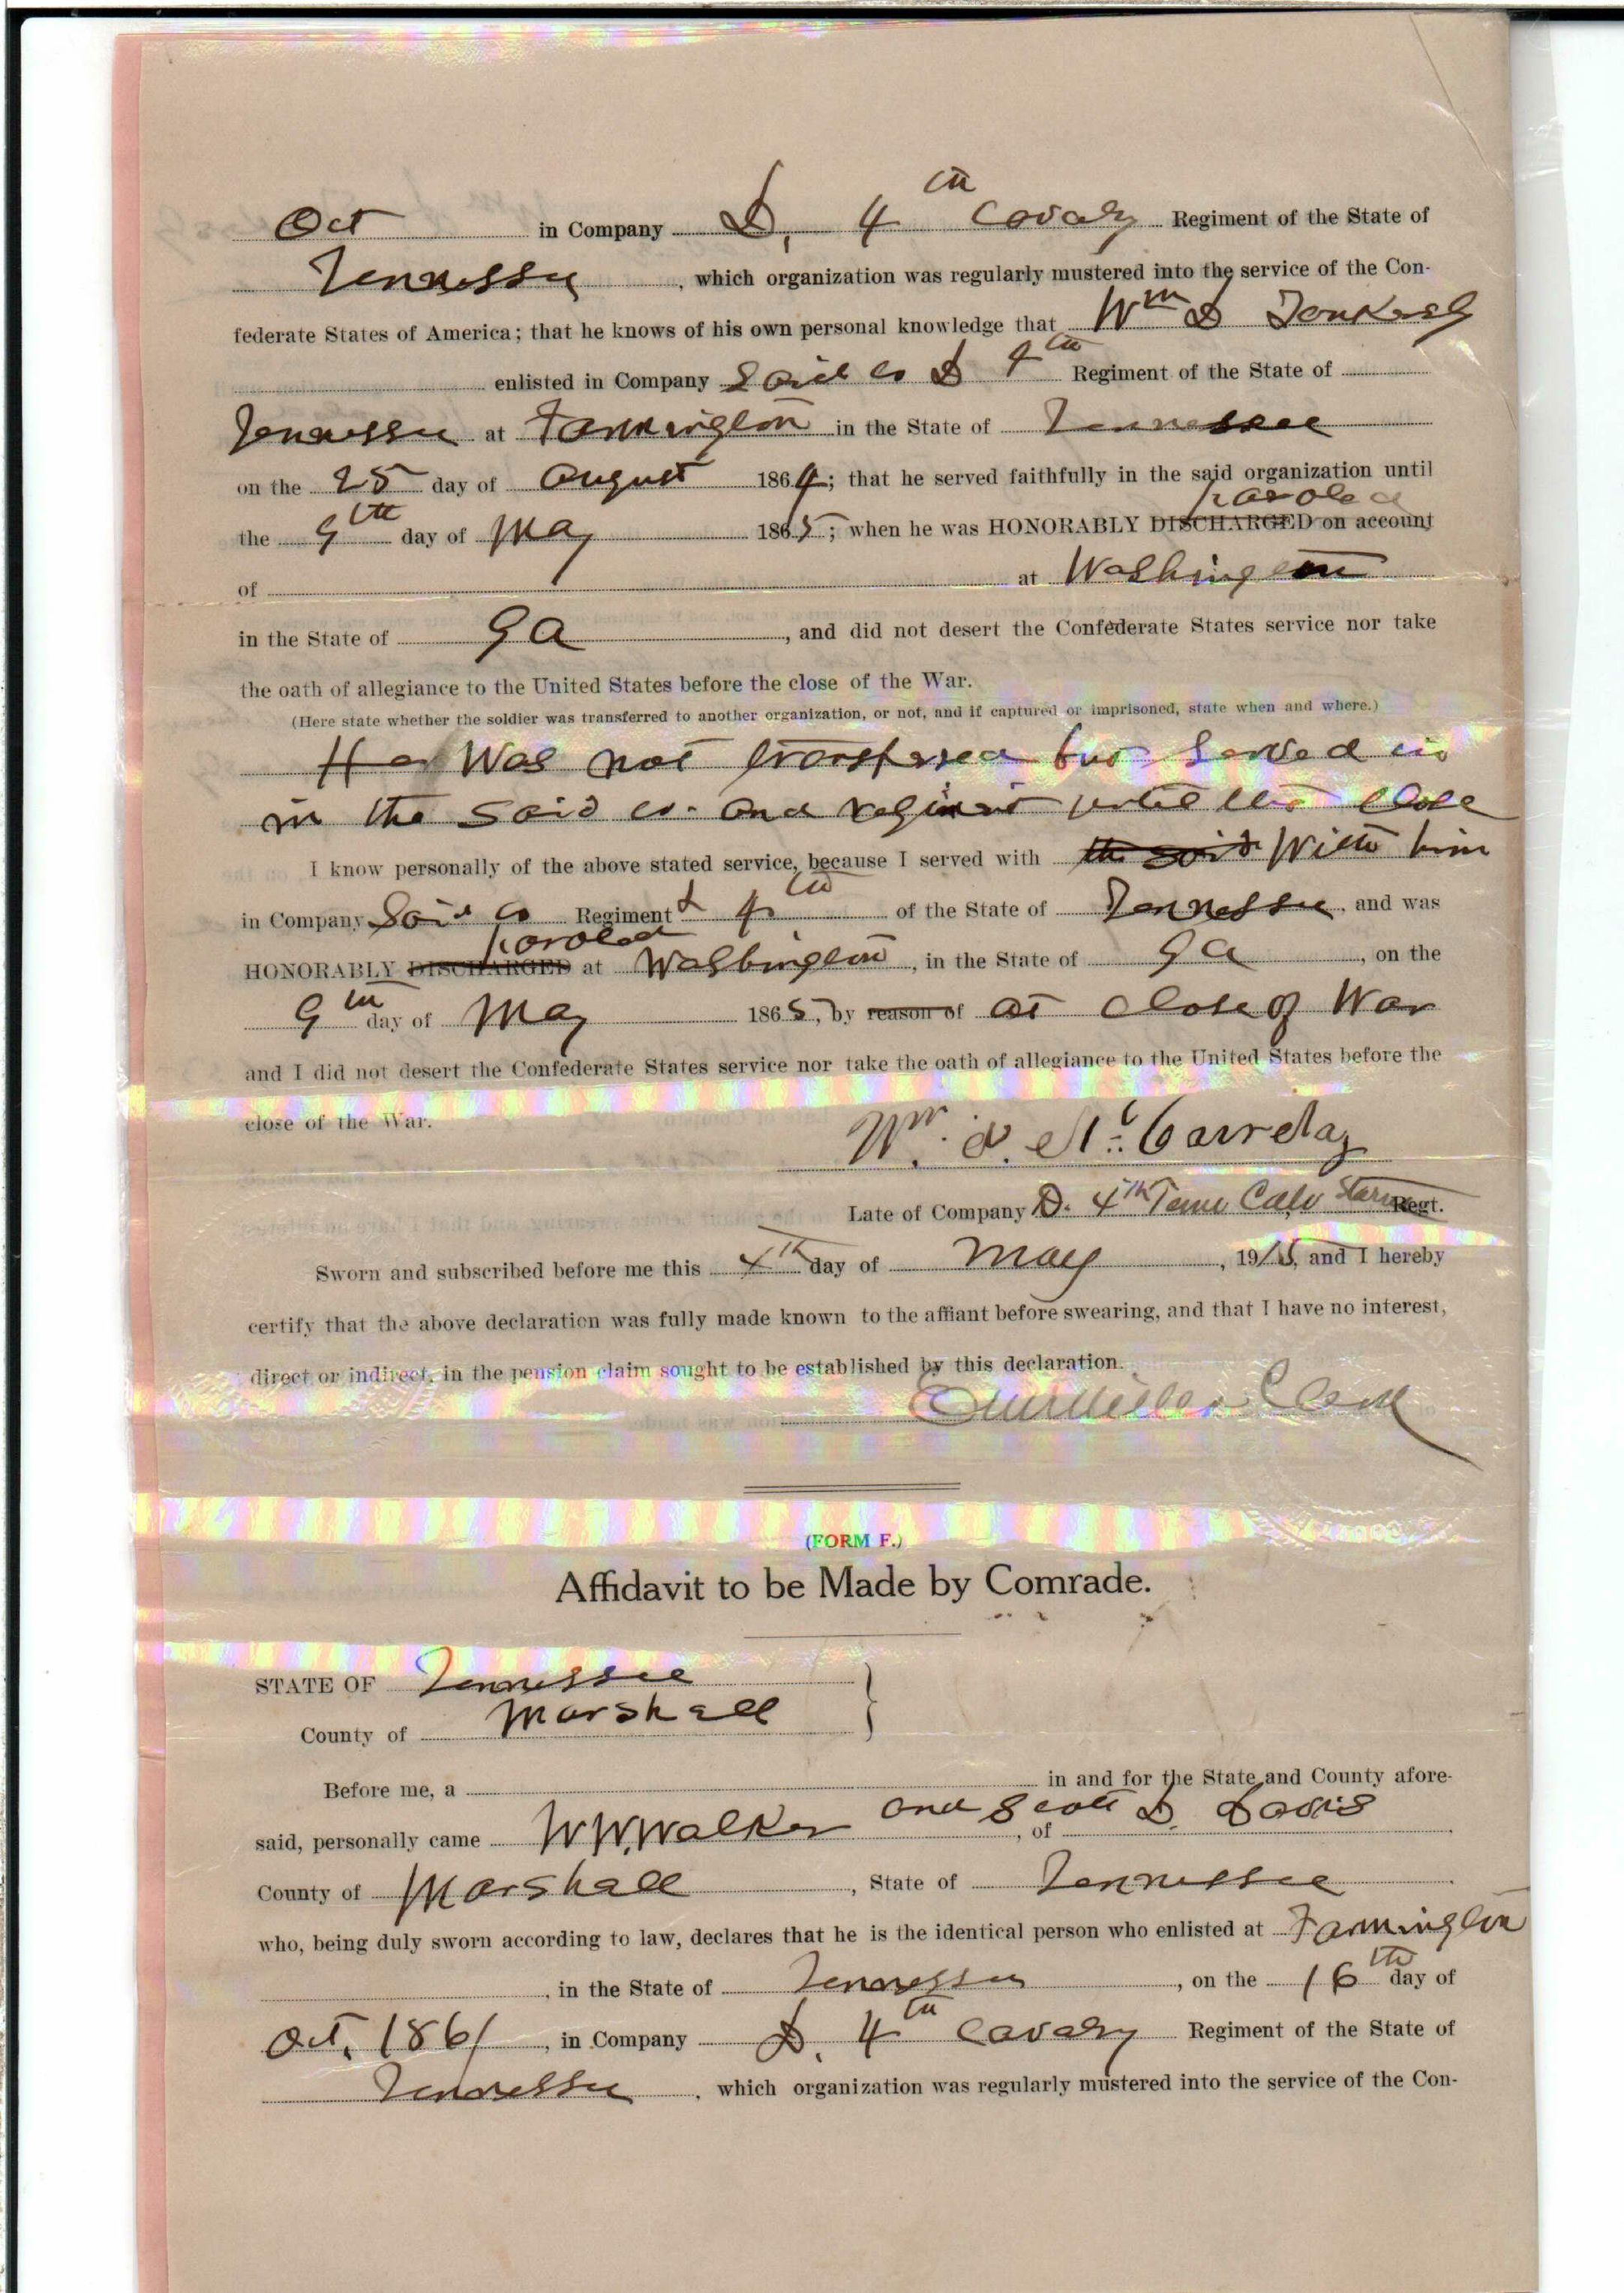 Oct in Company D, 4th Cavalry Regiment of the State of
Tennessee, which organization was regularly mustered into the service of the Con-
federate States of America; that he knows of his own personal knowledge that Wm D
enlisted in Company Said Co D 4th Regiment of the State of
Tennessee at Farmington in the State of Tennessee
on the 25 day of August 1864; that he served faithfully in the said organization until
paroled
the 9th day of May 1865; when he was HONORABLY DISCHARGED on account
of at Washington
in the State of Ga, and did not desert the Confederate States service nor take
the oath of allegiance to the United States before the close of the War.
(Here state whether the soldier was transferred to another organization, or not, and if captured or imprisoned, state when and where.)
He Was not transferred but Served in
in the Said Co. and regiment until the close
I know personally of the above stated service, because I served with the said With him
in Company Said Co Regiment & 4th of the State of Tennessee, and was
paroled
HONORABLY DISCHARGED at Washington, in the State of Ga, on the
9th day of May 1865, by reason of at close of War
and I did not desert the Confederate States service nor take the oath of allegiance to the United States before the
close of the War.
Wm.
Late of Company D. 4th Tenn Calv Regt.
Sworn and subscribed before me this 4th day of May, 1915, and I hereby
certify that the above declaration was fully made known to the affiant before swearing, and that I have no interest,
direct or indirect, in the pension claim sought to be established by this declaration.
Clerk
(FORM F.)
Affidavit to be Made by Comrade.
STATE OF Tennessee
County of Marshall
Before me, a in and for the State and County afore-
said, personally came W.W. Walker and Scott D. Davis, of
County of Marshall, State of Tennessee
who, being duly sworn according to law, declares that he is the identical person who enlisted at Farmington
, in the State of Tennessee, on the 16th day of
Oct. 1861, in Company D. 4th Cavalry Regiment of the State of
Tennessee, which organization was regularly mustered into the service of the Con-